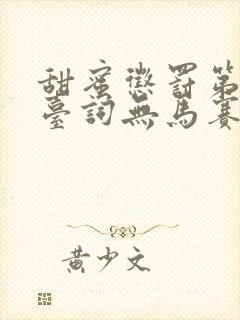 甜蜜懲罰第
臺詞無馬賽
黃少文